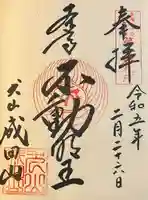 奉拝
令和五年
二月二十六日
不動明王
犬山成田山